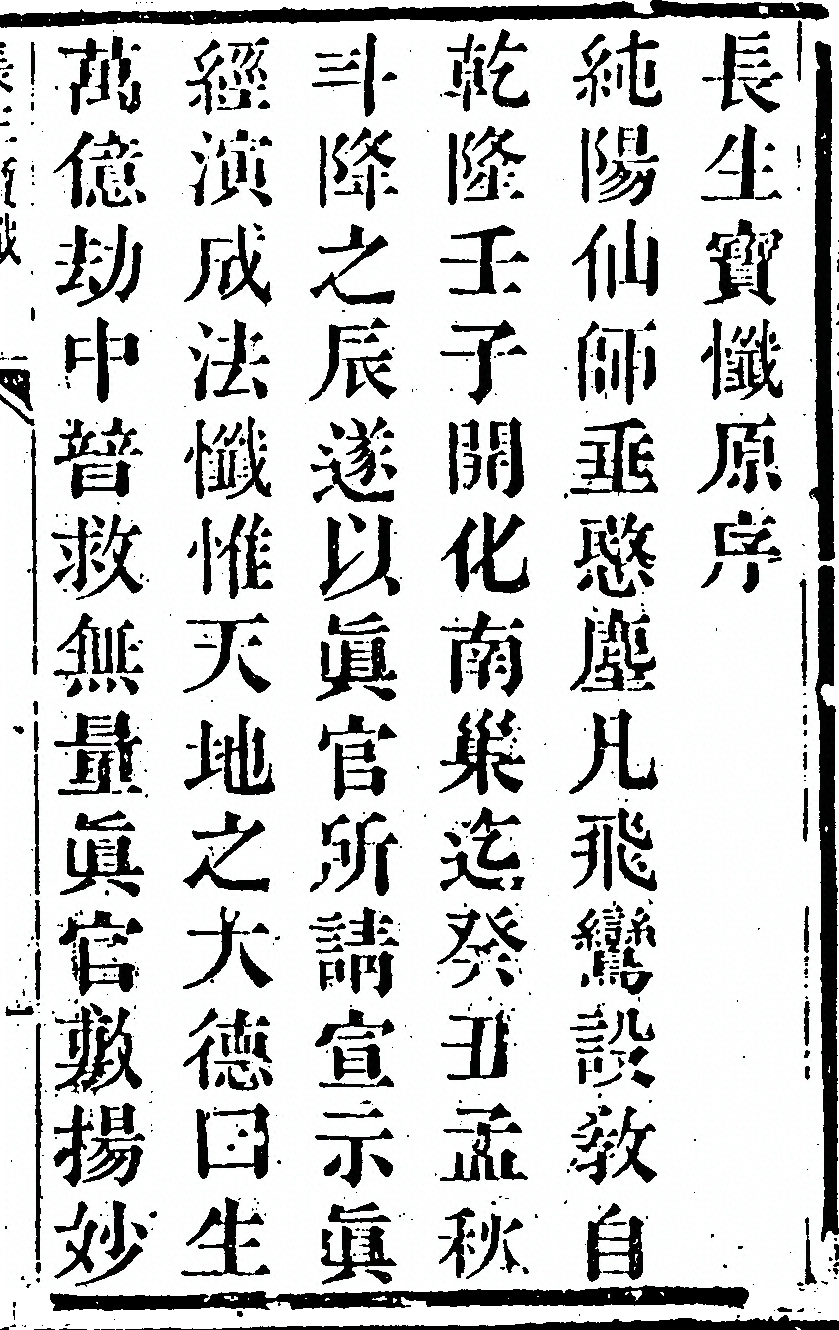 長生寶懺原序
純陽仙師垂愍塵凡飛鸞設教自
乾隆壬子開化南巢迄癸丑孟秋
斗降之辰遂以眞官所請宣示眞
經演成法懺惟天地之大德曰生
萬億劫中普救無量眞官敷揚妙